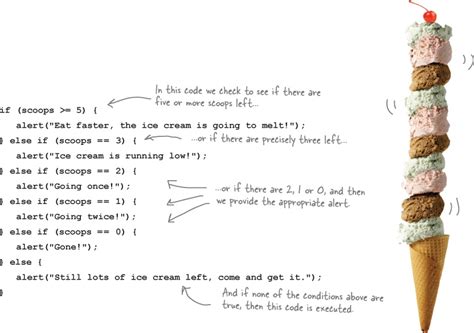 In this code we check to see if there are
five or more scoops left...
if (scoops >= 5) {
alert("Eat faster, the ice cream is going to melt!");
} else if (scoops == 3) {
...or if there are precisely three left...
alert("Ice cream is running low!");
} else if (scoops == 2) {
alert("Going once!");
...or if there are 2, 1 or 0, and then
we provide the appropriate alert.
} else if (scoops == 1) {
alert("Going twice!");
} else if (scoops == 0) {
alert("Gone!");
} else {
alert("Still lots of ice cream left, come and get it.");
}
And if none of the conditions above are
true, then this code is executed.